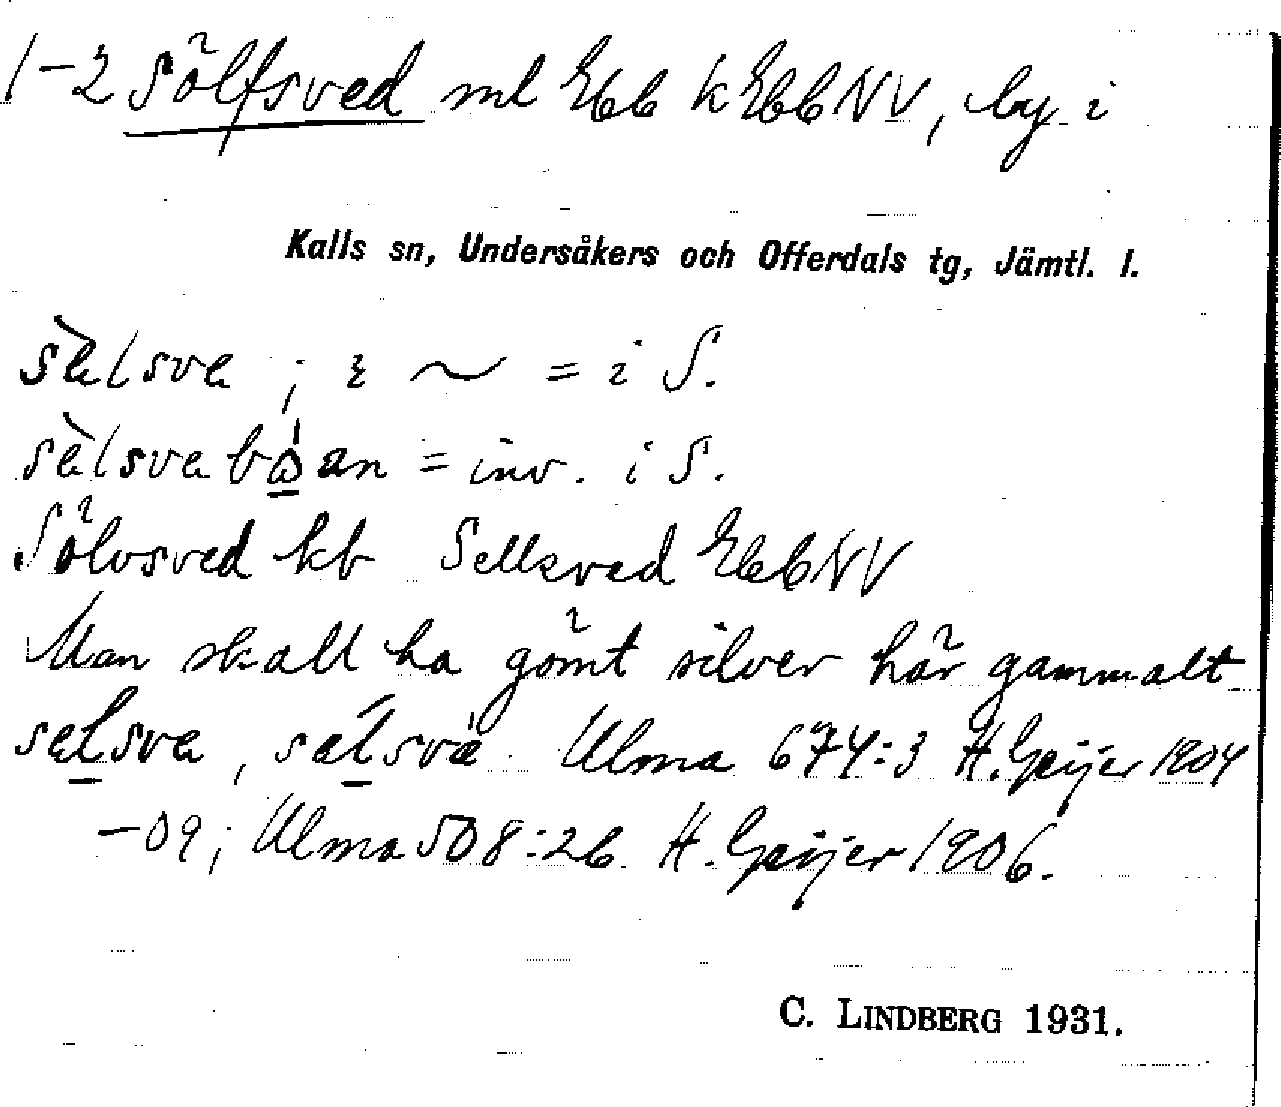 1-2 Sölfsved ml Ebb k EbbNV, by i
Kalls sn, Undersåkers och Offerdals tg, Jämtl. l.
sèlsva ; i ~ = i S.
sèlsvabóan = inv. i S.
Sölvsved kb Sellsved EbbNV
Man skall ha gömt silver här gammalt
selsva, sélsvä. Ulma 674:3 H. Geijer 1904
-09; Ulma 508:26. H. Geijer 1906.
C. LINDBERG 1931.